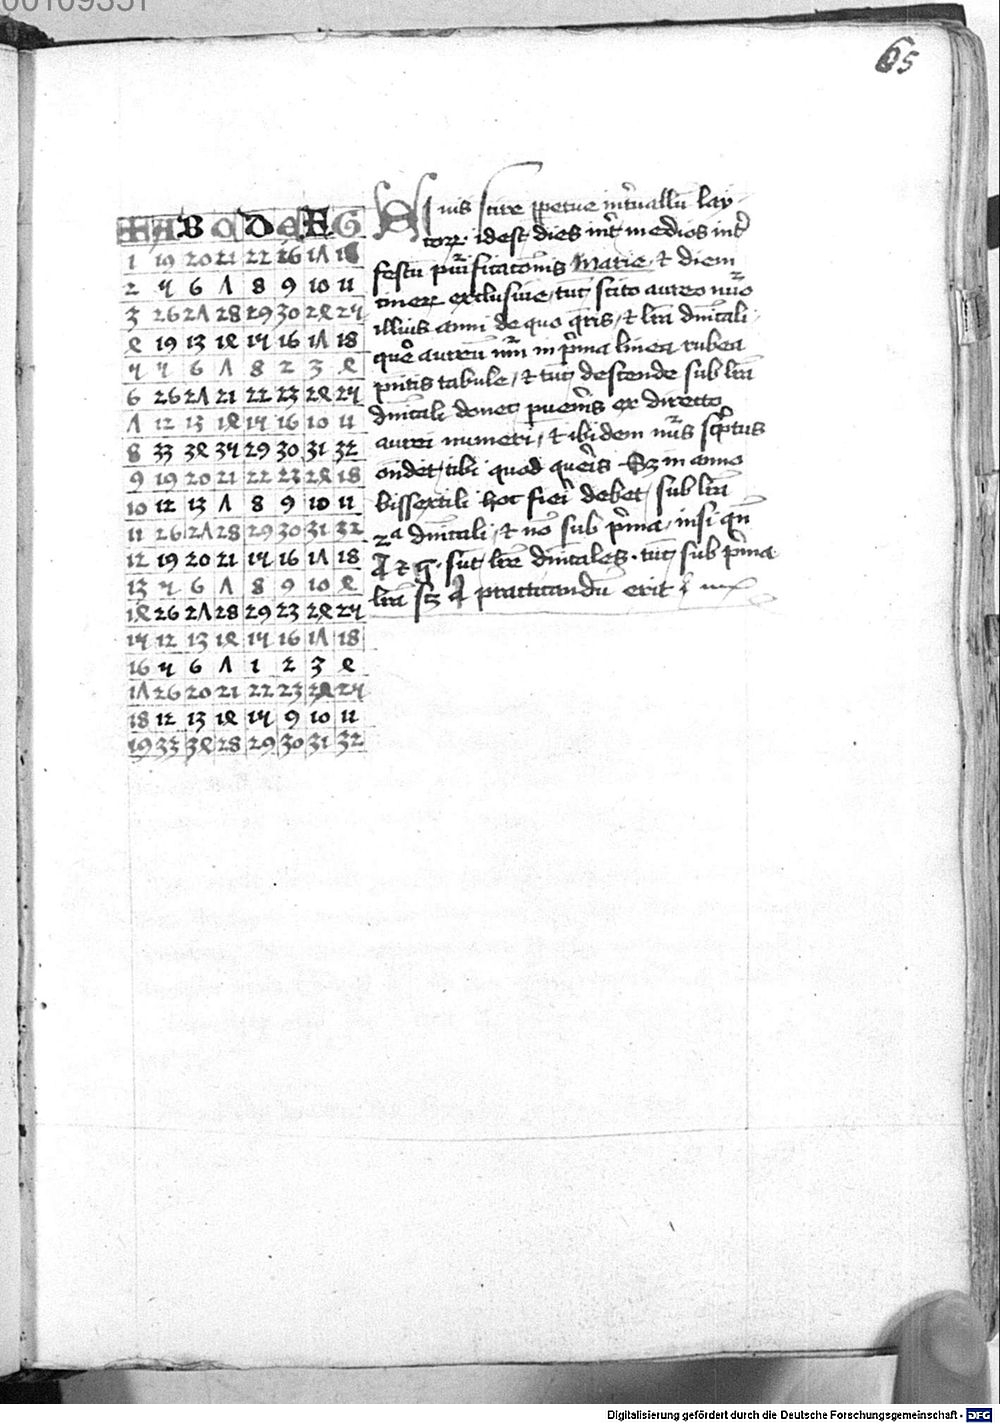 00109351
65
+ A B C D E F G
1 19 20 21 22 16 17 18
2 5 6 7 8 9 10 11
3 26 27 28 29 30 24 25
4 19 13 14 15 16 17 18
5 5 6 7 8 2 3 4
6 26 27 21 22 23 24 25
7 12 13 14 15 16 10 11
8 33 34 35 29 30 31 32
9 19 20 21 22 23 24 18
10 12 13 7 8 9 10 11
11 26 27 28 29 30 31 32
12 19 20 21 15 16 17 18
13 5 6 7 8 9 10 4
14 26 27 28 29 23 24 25
15 12 13 14 15 16 17 18
16 5 6 7 1 2 3 4
17 26 20 21 22 23 24 25
18 12 13 14 15 9 10 11
19 33 34 28 29 30 31 32
Si vis scire ppetue int'uallu lay
corr. idest dies int' medios int'
festu purificacois Marie et diem
ciner exclusiue tuc scito aureo nuo
illius anni de quo qris et lra dnicali
que aureu nm in pma linea rubea
pntis tabule et tuc descende sub lra
dnicali donec pueis ex directo
aurei numeri et ibidem nus scptus
ondet tibi quod queis Sz in anno
bissextili hoc fieri debet sub lra
2a dnicali et no sub pma nisi qn
A et g sut lre dnicales tuc sub pma
lra scz A practicandu erit
Digitalisierung gefördert durch die Deutsche Forschungsgemeinschaft - DFG